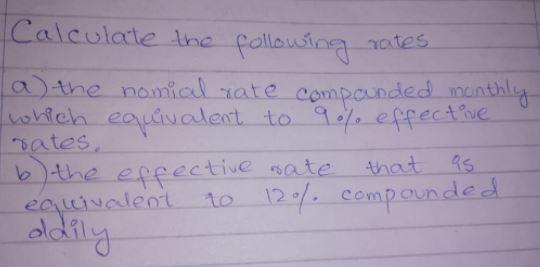 Calculate the following rates
a) the nomial rate compounded monthly
which equivalent to 9% effective
rates.
b) the effective rate that is
equivalent to 12% compounded
ddily